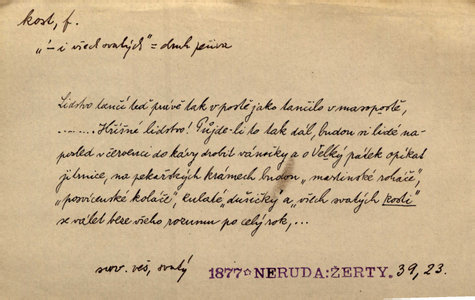 kost, f.
„– i všech svatých" = druh pečiva
Lidstvo tančí teď právě tak v postě jako tančilo v masopostě,
........ Hříšné lidstvo! Půjde-li to tak dál, budou si lidé na-
posled v červenci do kávy drobit vánočky a o Velký pátek opíkat
jitrnice, na pekařských krámech budou „martinské roháče",
„posvícenské koláče", kulaté „dušičky" a „všech svatých kosti"
se válet beze všeho rozumu po celý rok, ...
svatý
1877 ☆ NERUDA: ŽERTY. 39, 23.